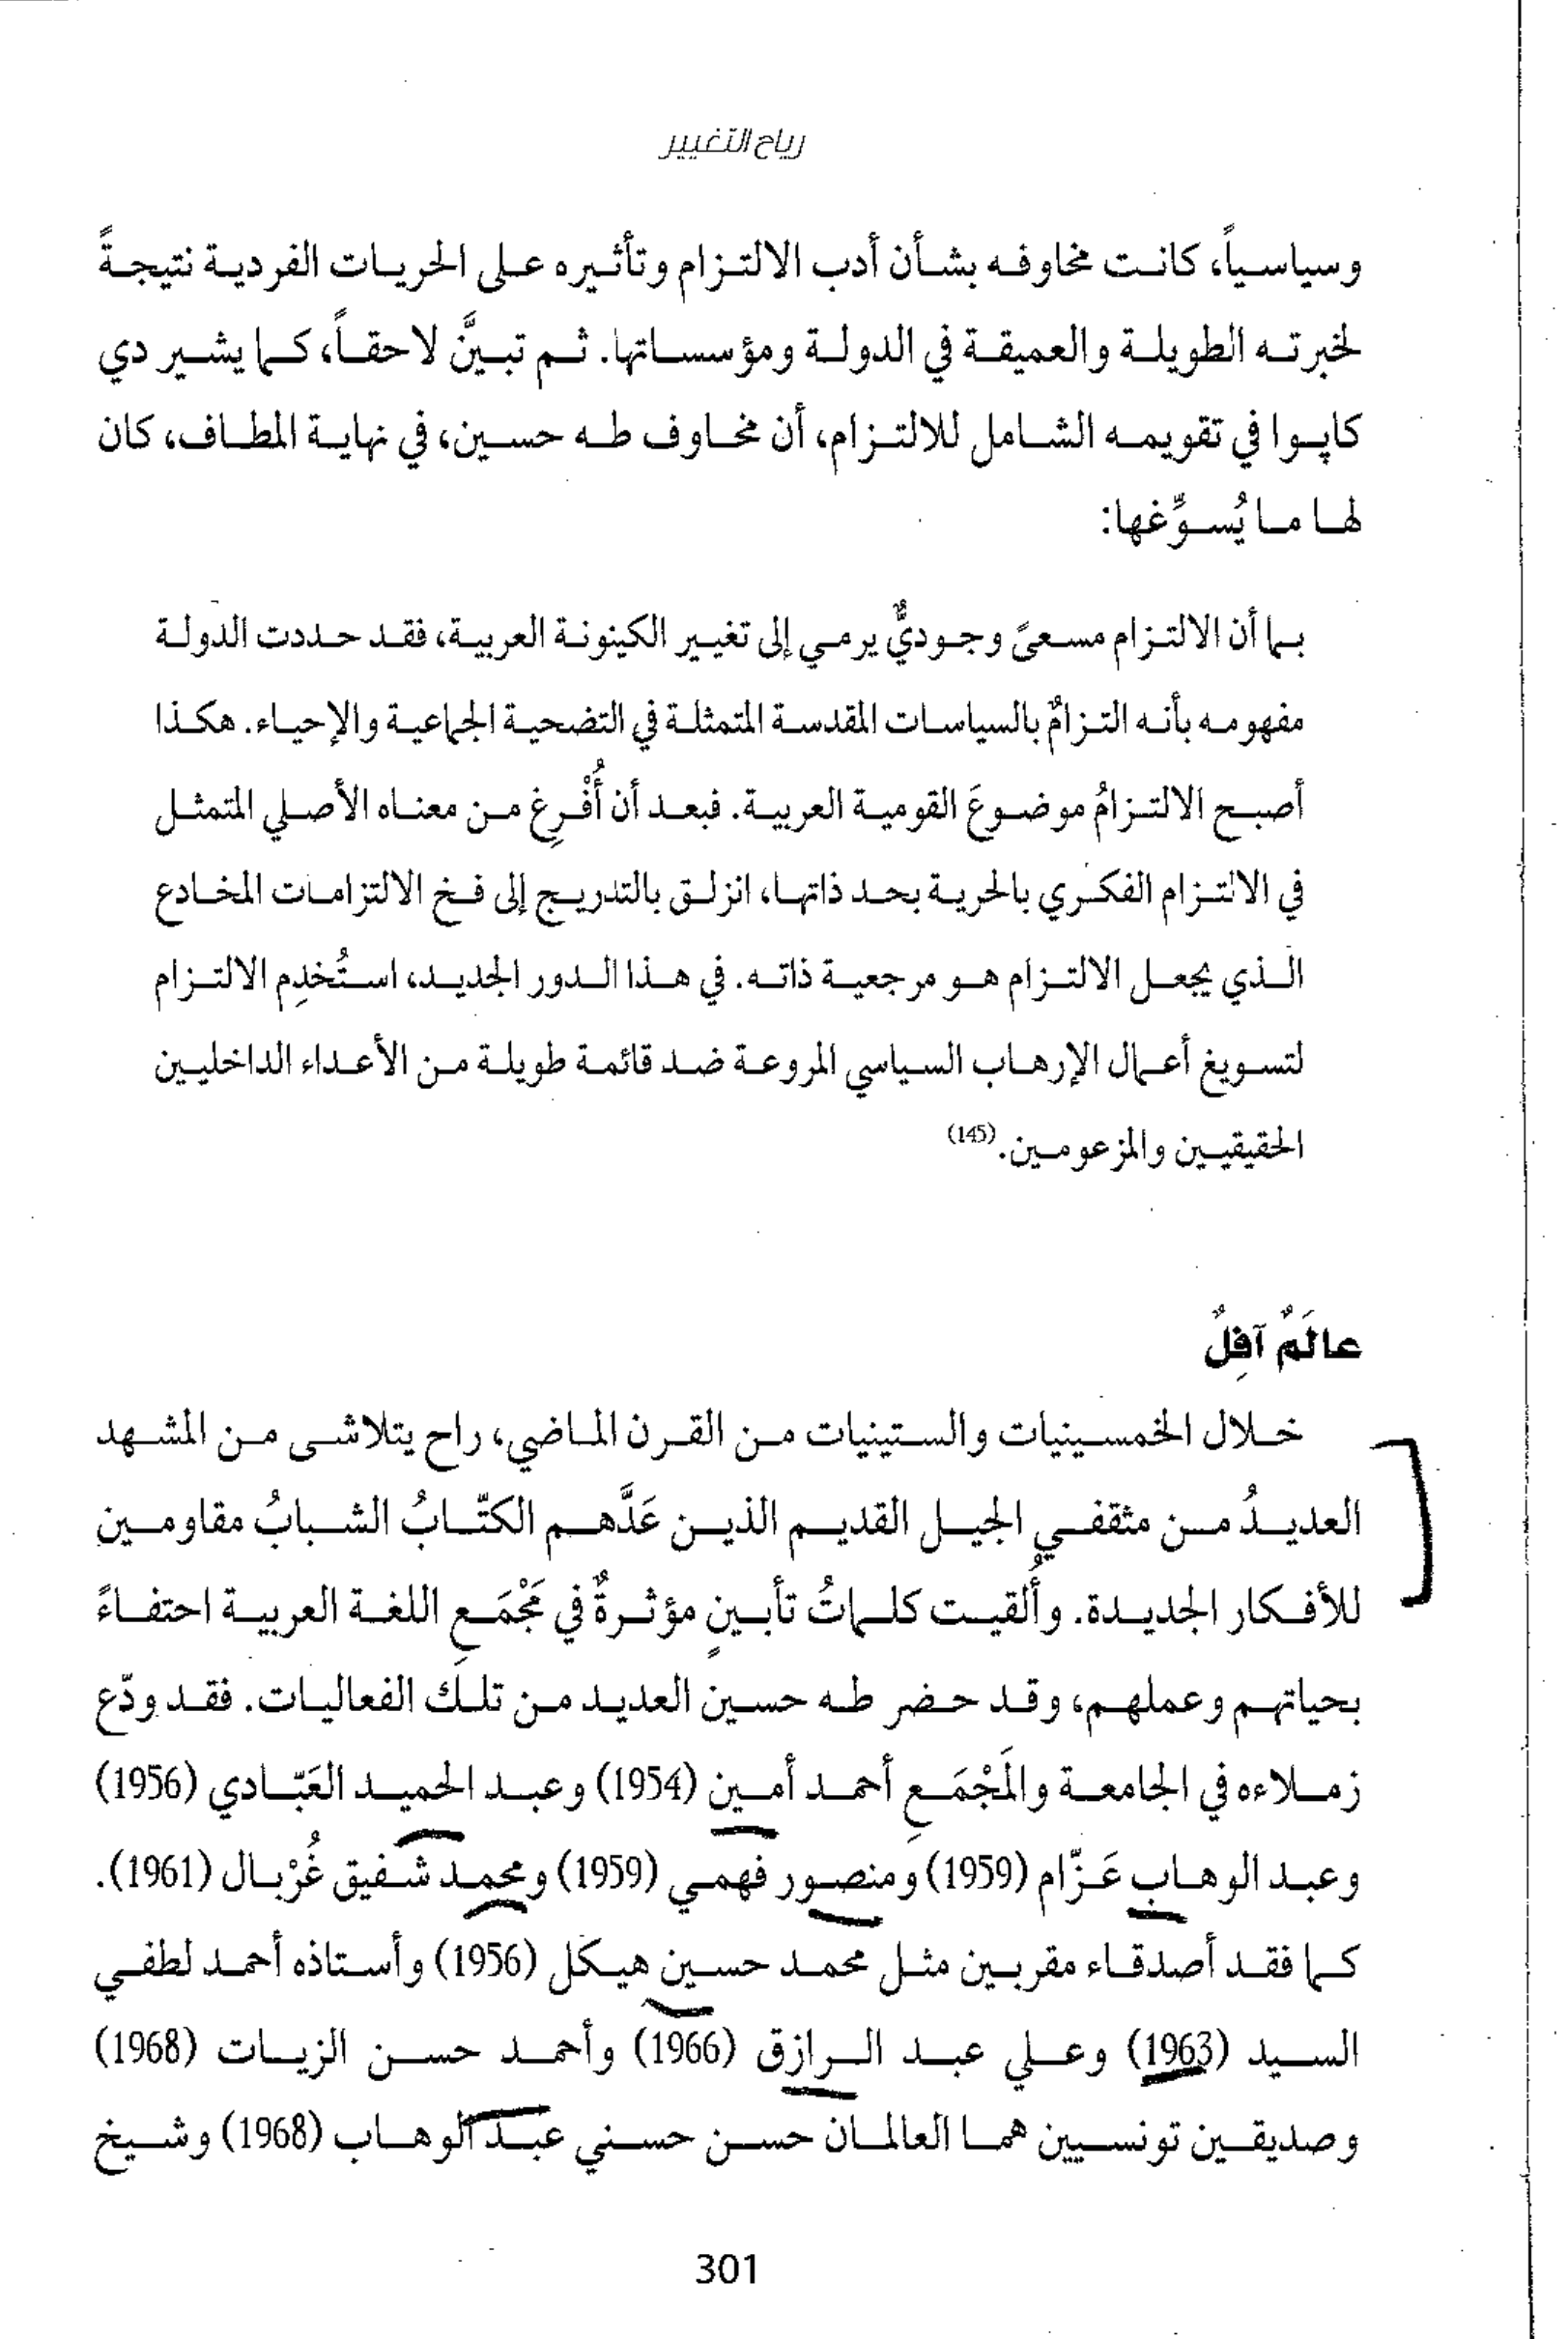 رياح التغيير
وسياسياً، كانت مخاوفه بشأن أدب الالتزام وتأثيره على الحريات الفردية نتيجةً
لخبرته الطويلة والعميقة في الدولة ومؤسساتها. ثم تبينَّ لاحقاً، كما يشير دي
كاپوا في تقويمه الشامل للالتزام، أن مخاوف طه حسين، في نهاية المطاف، كان
لها ما يُسوِّغها:
بما أن الالتزام مسعىً وجوديٌّ يرمي إلى تغيير الكينونة العربية، فقد حددت الدولة
مفهومه بأنه التزامٌ بالسياسات المقدسة المتمثلة في التضحية الجماعية والإحياء. هكذا
أصبح الالتزامُ موضوعَ القومية العربية. فبعد أن أُفْرِغ من معناه الأصلي المتمثل
في الالتزام الفكري بالحرية بحد ذاتها، انزلق بالتدريج إلى فخ الالتزامات المخادع
الذي يجعل الالتزام هو مرجعية ذاته. في هذا الدور الجديد، استُخدِم الالتزام
لتسويغ أعمال الإرهاب السياسي المروعة ضد قائمة طويلة من الأعداء الداخليين
الحقيقيين والمزعومين.(145)
عالَمٌ آفِلٌ
خلال الخمسينيات والستينيات من القرن الماضي، راح يتلاشى من المشهد
العديدُ من مثقفي الجيل القديم الذين عَدَّهم الكتّابُ الشبابُ مقاومين
للأفكار الجديدة. وأُلقيت كلماتُ تأبينٍ مؤثرةٌ في مَجْمَعِ اللغة العربية احتفاءً
بحياتهم وعملهم، وقد حضر طه حسين العديد من تلك الفعاليات. فقد ودّع
زملاءه في الجامعة والمَجْمَعِ أحمد أمين (1954) وعبد الحميد العَبّادي (1956)
وعبد الوهاب عَزّام (1959) ومنصور فهمي (1959) ومحمد شفيق غُرْبال (1961).
كما فقد أصدقاء مقربين مثل محمد حسين هيكل (1956) وأستاذه أحمد لطفي
السيد (1963) وعلي عبد الرازق (1966) وأحمد حسن الزيات (1968)
وصديقين تونسيين هما العالمان حسن حسني عبد الوهاب (1968) وشيخ
301